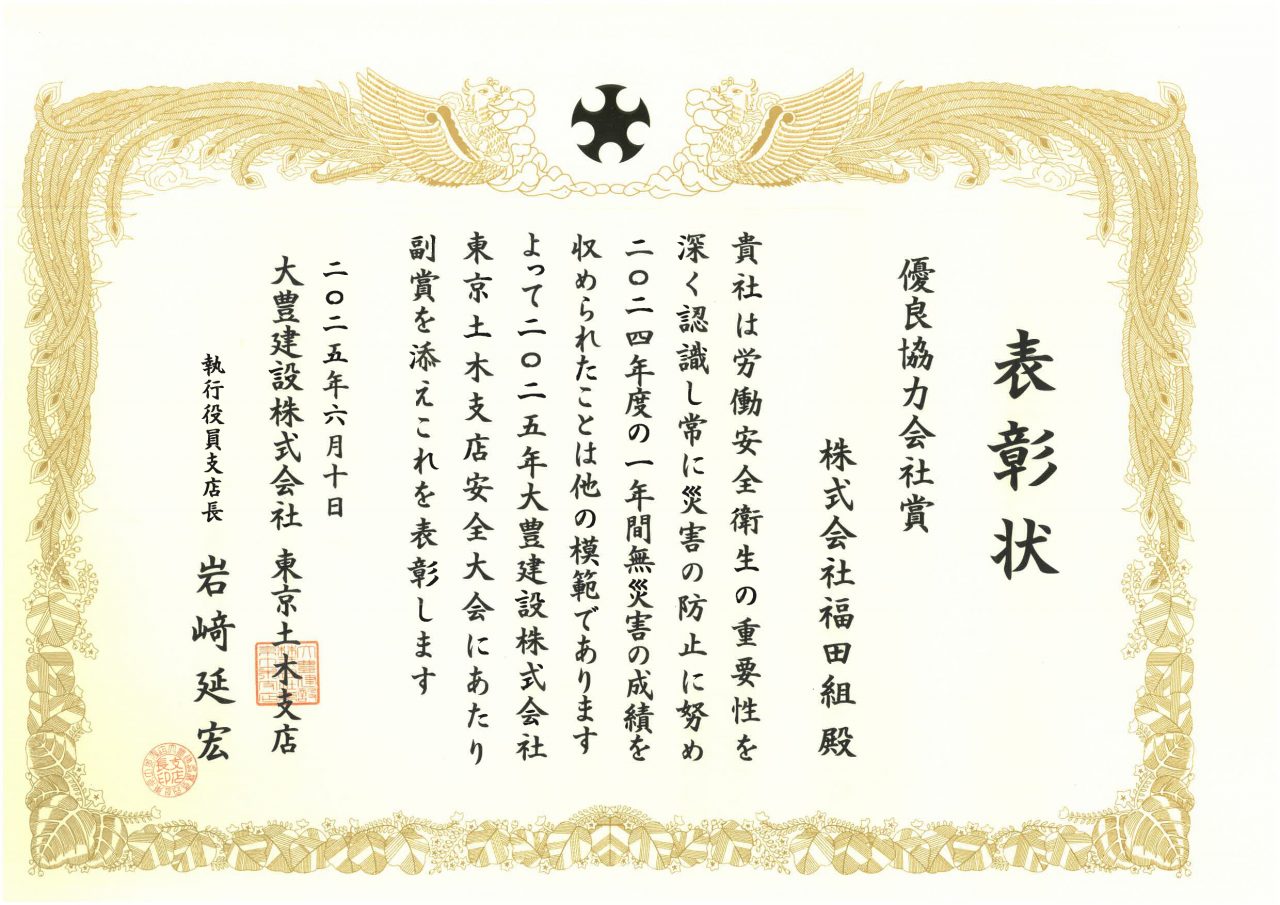 表彰状
優良協力会社賞
株式会社福田組 殿
貴社は労働安全衛生の重要性を
深く認識し常に災害の防止に努め
二〇二四年度の一年間無災害の成績を
収められたことは他の模範であります
よって二〇二五年大豊建設株式会社
東京土木支店安全大会にあたり
副賞を添えこれを表彰します
二〇二五年六月十日
大豊建設株式会社 東京土木支店
執行役員支店長 岩﨑延宏
支店長印